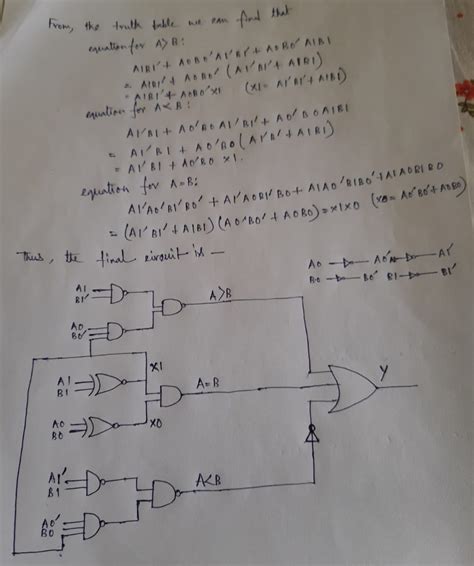 From, the truth table we can find that
equation for A>B:
A1B1' + A0B0'A1'B1' + A0B0'A1B1
= A1B1' + A0B0' (A1'B1' + A1B1)
= A1B1' + A0B0'X1 (X1 = A1'B1' + A1B1)
equation for A<B:
A1'B1 + A0'B0A1'B1' + A0'B0A1B1
= A1'B1 + A0'B0 (A1'B1' + A1B1)
= A1'B1 + A0'B0 X1.
equation for A=B:
A1'A0'B1'B0' + A1'A0B1'B0 + A1A0'B1B0' + A1A0B1B0
= (A1'B1' + A1B1) (A0'B0' + A0B0) = X1X0 (X0 = A0'B0' + A0B0)
Thus, the final circuit is —
A0 A0' A1 A1'
B0 B0' B1 B1'
A1
B1'
A>B
A0
B0'
X1
A1
B1
A=B
Y
A0
B0
X0
A1'
B1
A<B
A0'
B0